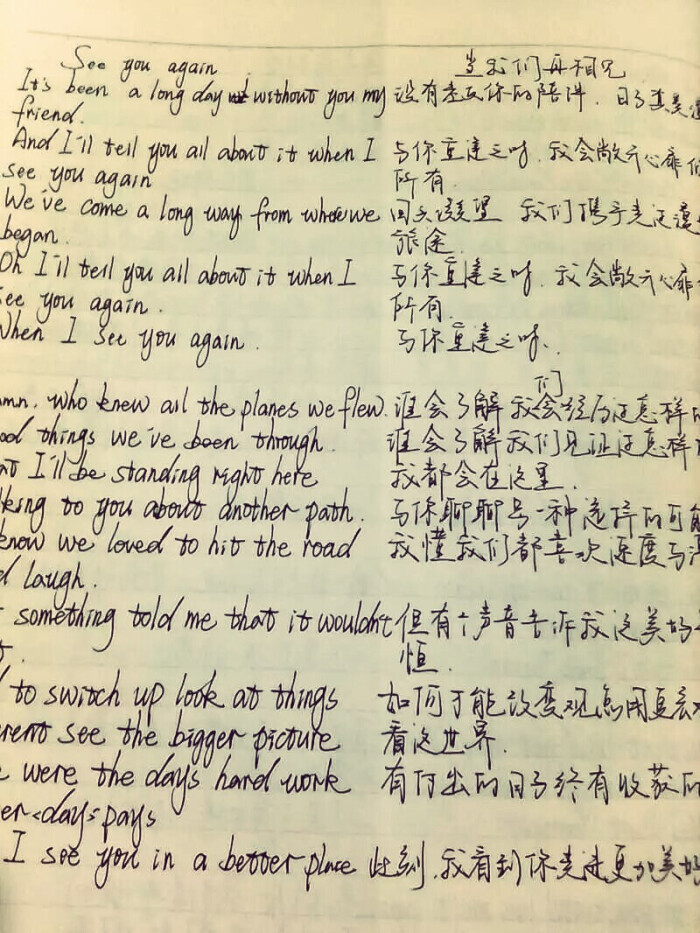 See you again 当我们再相见
It's been a long day without you my 没有老友你的陪伴，日子真是
friend.
And I'll tell you all about it when I 与你重逢之时，我会敞开心扉
see you again 所有.
We've come a long way from where we 回头凝望 我们携手走过漫
began. 旅途.
Oh I'll tell you all about it when I 与你重逢之时，我会敞开心扉
see you again. 所有.
When I see you again. 与你重逢之时、
们
mn. who knew all the planes we flew. 谁会了解我会经历过怎样
ood things we've been through. 谁会了解我们见证过怎样
at I'll be standing right here 我都会在这里.
lking to you about another path. 与你聊聊另一种选择的可能
know we loved to hit the road 我懂我们都喜欢速度与
d laugh.
something told me that it wouldn't 但有个声音告诉我这美好
恒.
to switch up look at things 如何才能改变观点用更宏
erent see the bigger picture 看这世界.
e were the days hard work 有付出的日子终有收获的
er<day=pays
I see you in a better place 此刻，我看到你走进更加美好